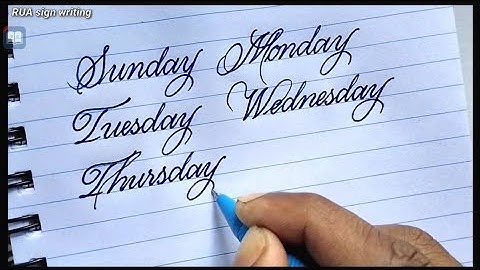 RUA sign writing
Sunday Monday
Tuesday Wednesday
Thursday